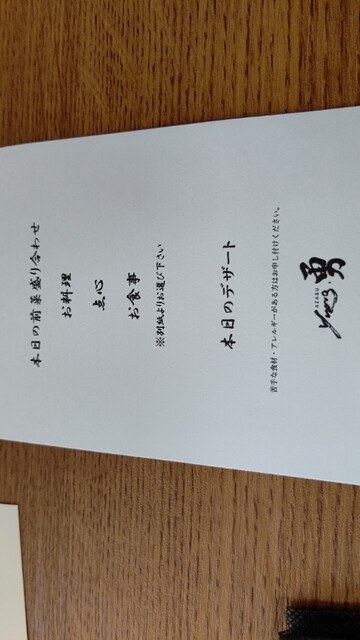 本日の前菜盛り合わせ
お料理
点心
お食事
※別紙よりお選び下さい
本日のデザート
苦手な食材・アレルギーがある方はお申し付けください。
勇
AZABU
Yung